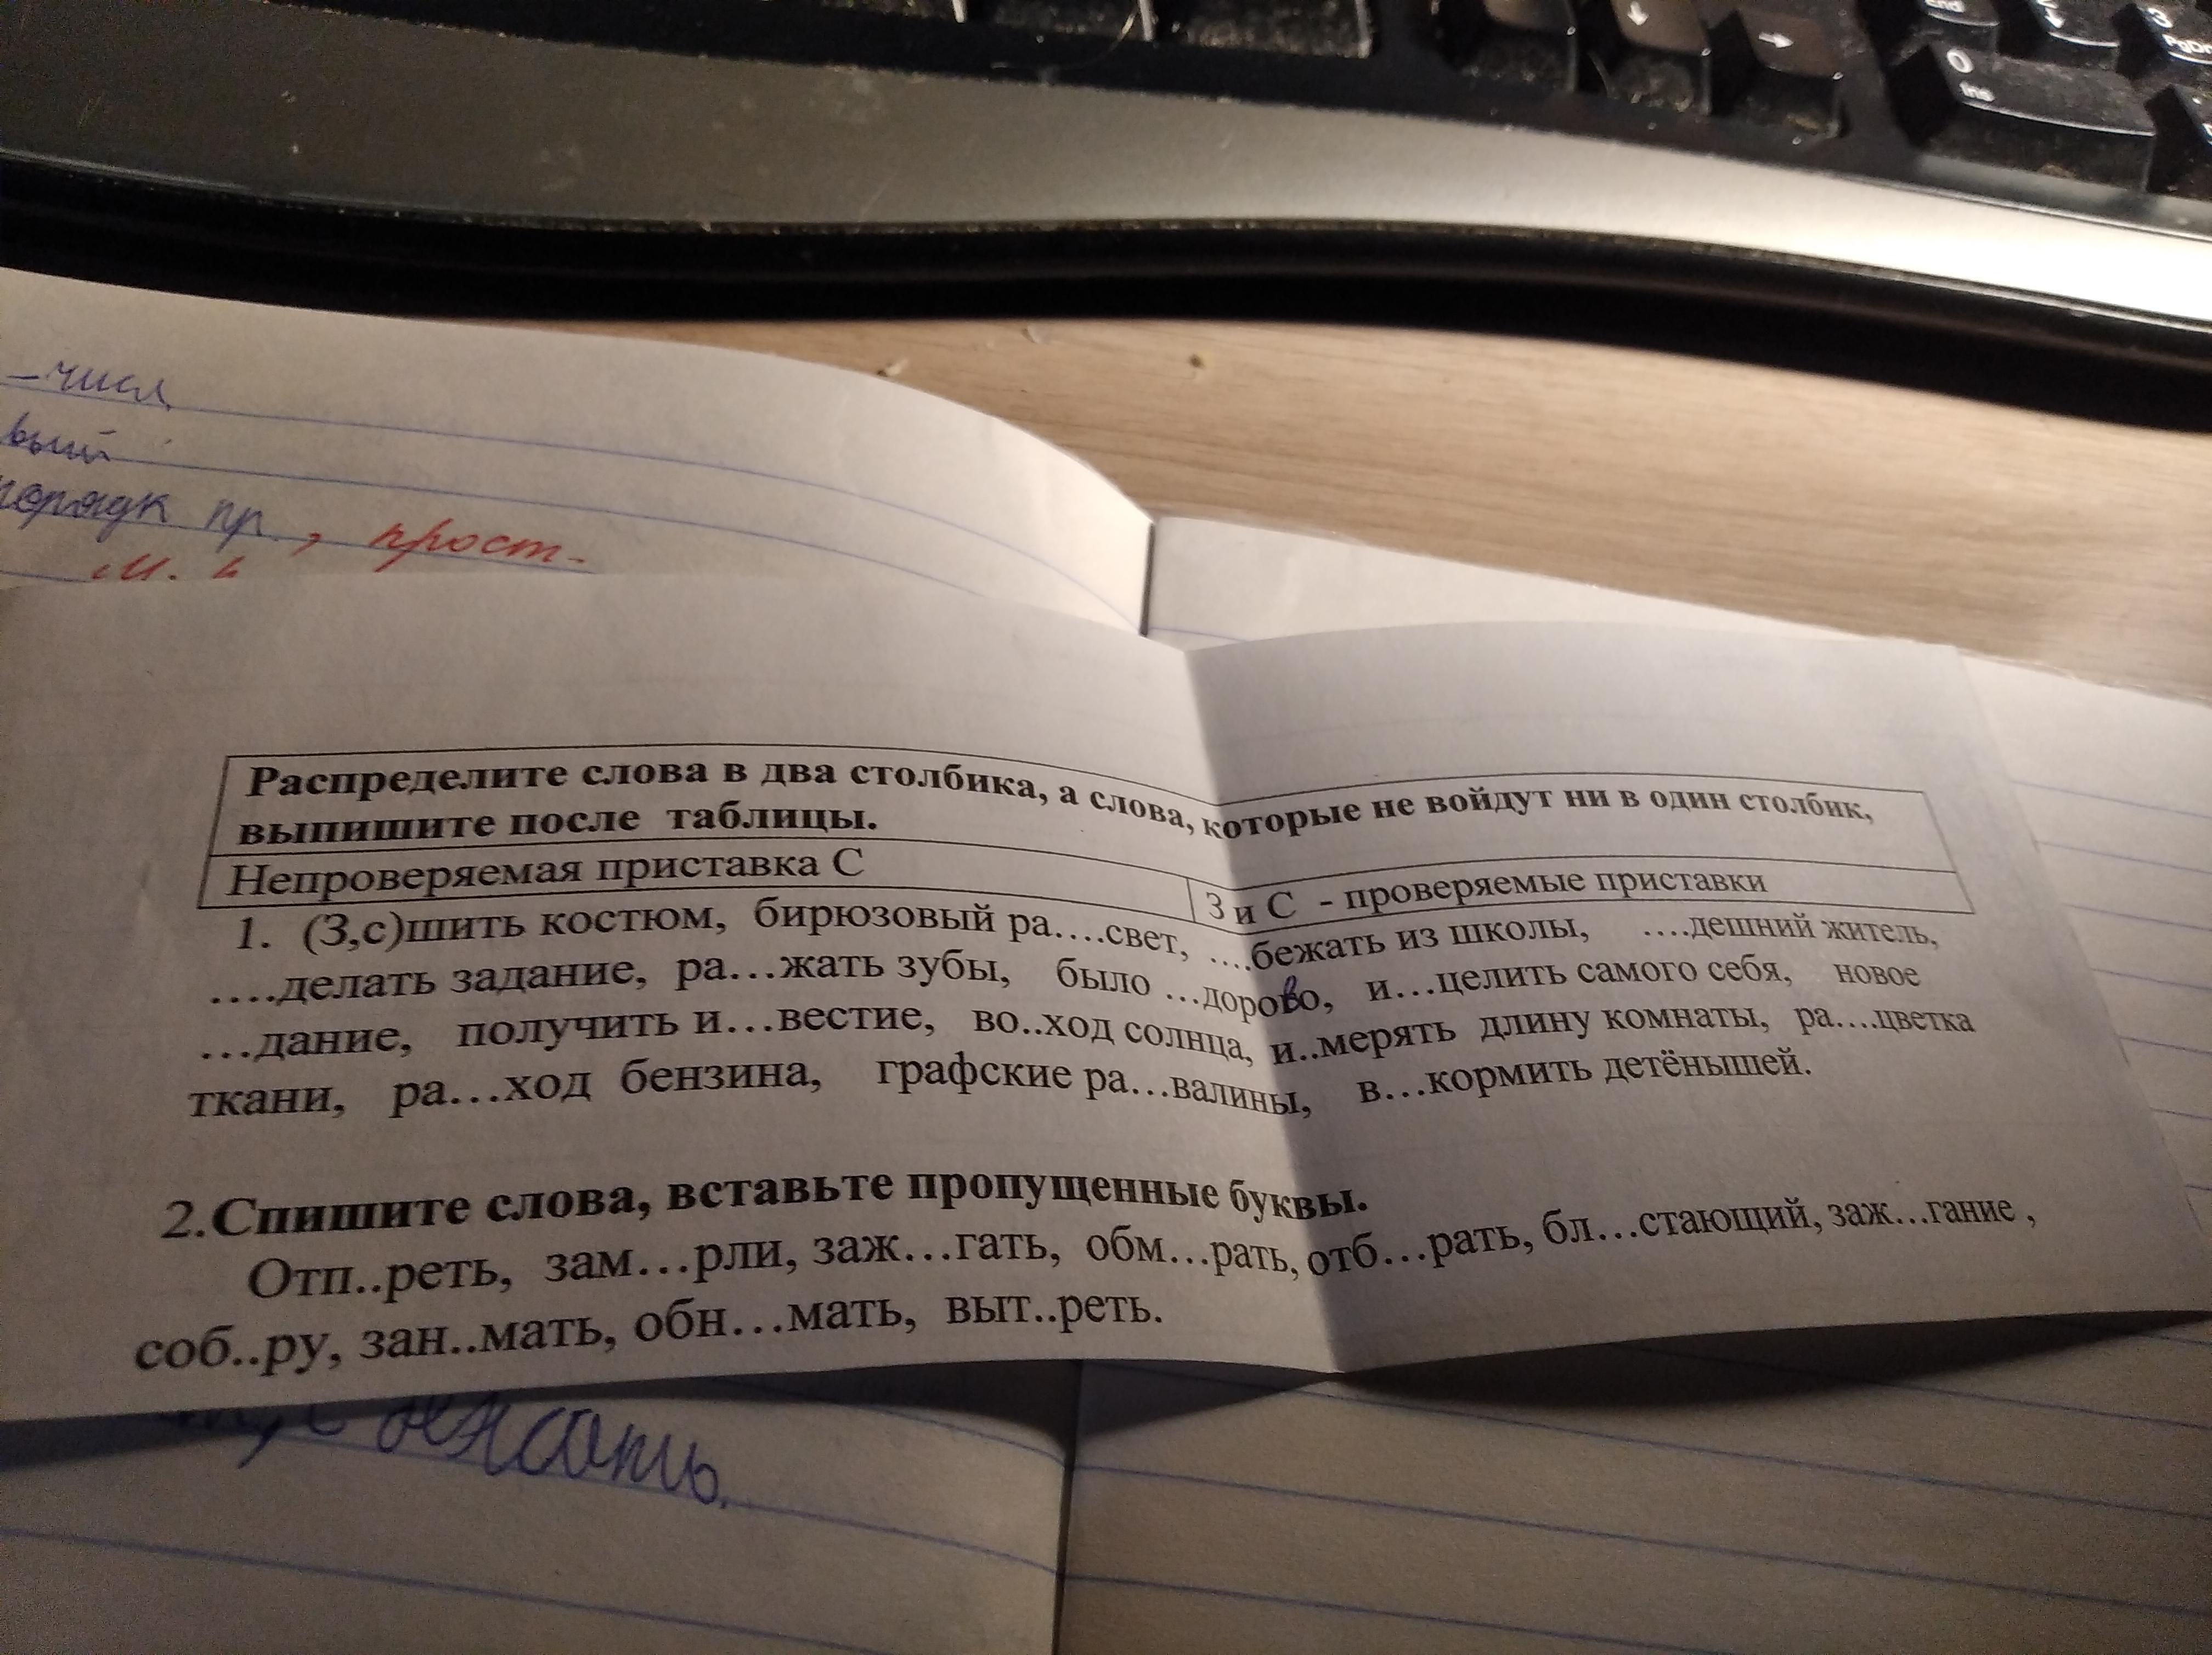 End
3
PgDn
0
Ins
–числ.
вый
поряdk пр., прост-
Распределите слова в два столбика, а слова, которые не войдут ни в один столбик,
выпишите после таблицы.
Непроверяемая приставка С
З и С - проверяемые приставки
1. (З,с)шить костюм, бирюзовый ра….свет, ….бежать из школы, ….дешний житель,
….делать задание, ра…жать зубы, было …дорово, и…целить самого себя, новое
…дание, получить и…вестие, во..ход солнца, и..мерять длину комнаты, ра….цветка
ткани, ра…ход бензина, графские ра…валины, в…кормить детёнышей.
2.Спишите слова, вставьте пропущенные буквы.
Отп..реть, зам…рли, заж…гать, обм…рать, отб…рать, бл…стающий, заж…гание ,
соб..ру, зан..мать, обн…мать, выт..реть.